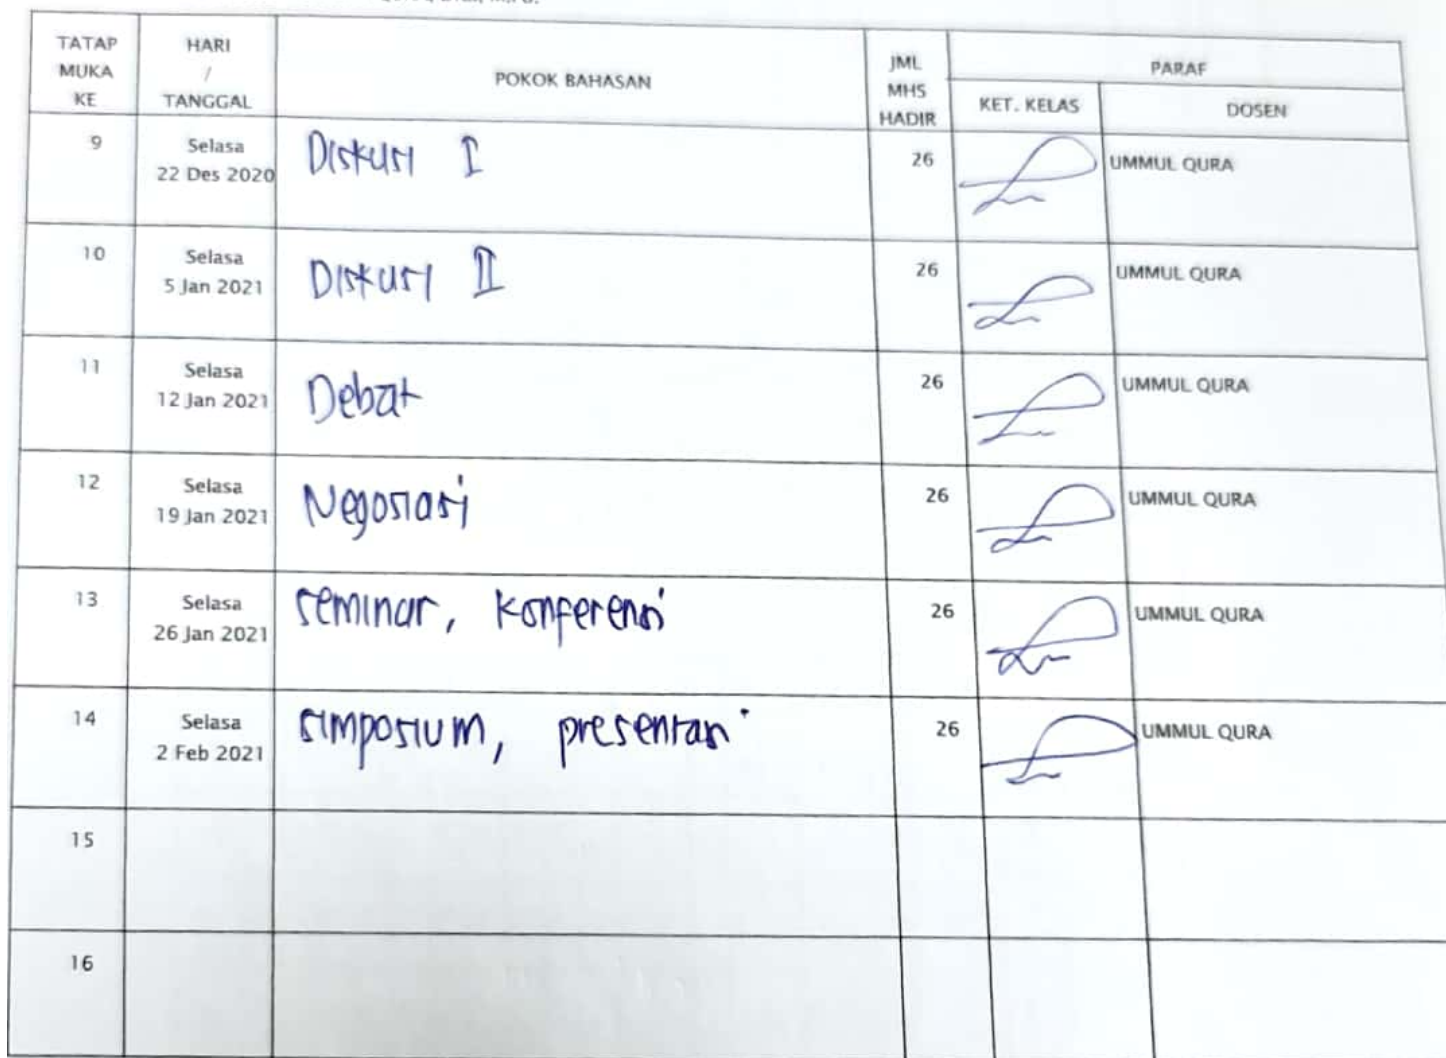 TATAP MUKA KE HARI / TANGGAL POKOK BAHASAN JML MHS HADIR PARAF
KET. KELAS DOSEN
9 Selasa 22 Des 2020 Diskusi I 26 UMMUL QURA
10 Selasa 5 Jan 2021 Diskusi II 26 UMMUL QURA
11 Selasa 12 Jan 2021 Debat 26 UMMUL QURA
12 Selasa 19 Jan 2021 Negosiasi 26 UMMUL QURA
13 Selasa 26 Jan 2021 seminar, konferensi 26 UMMUL QURA
14 Selasa 2 Feb 2021 simposium, presentasi 26 UMMUL QURA
15
16